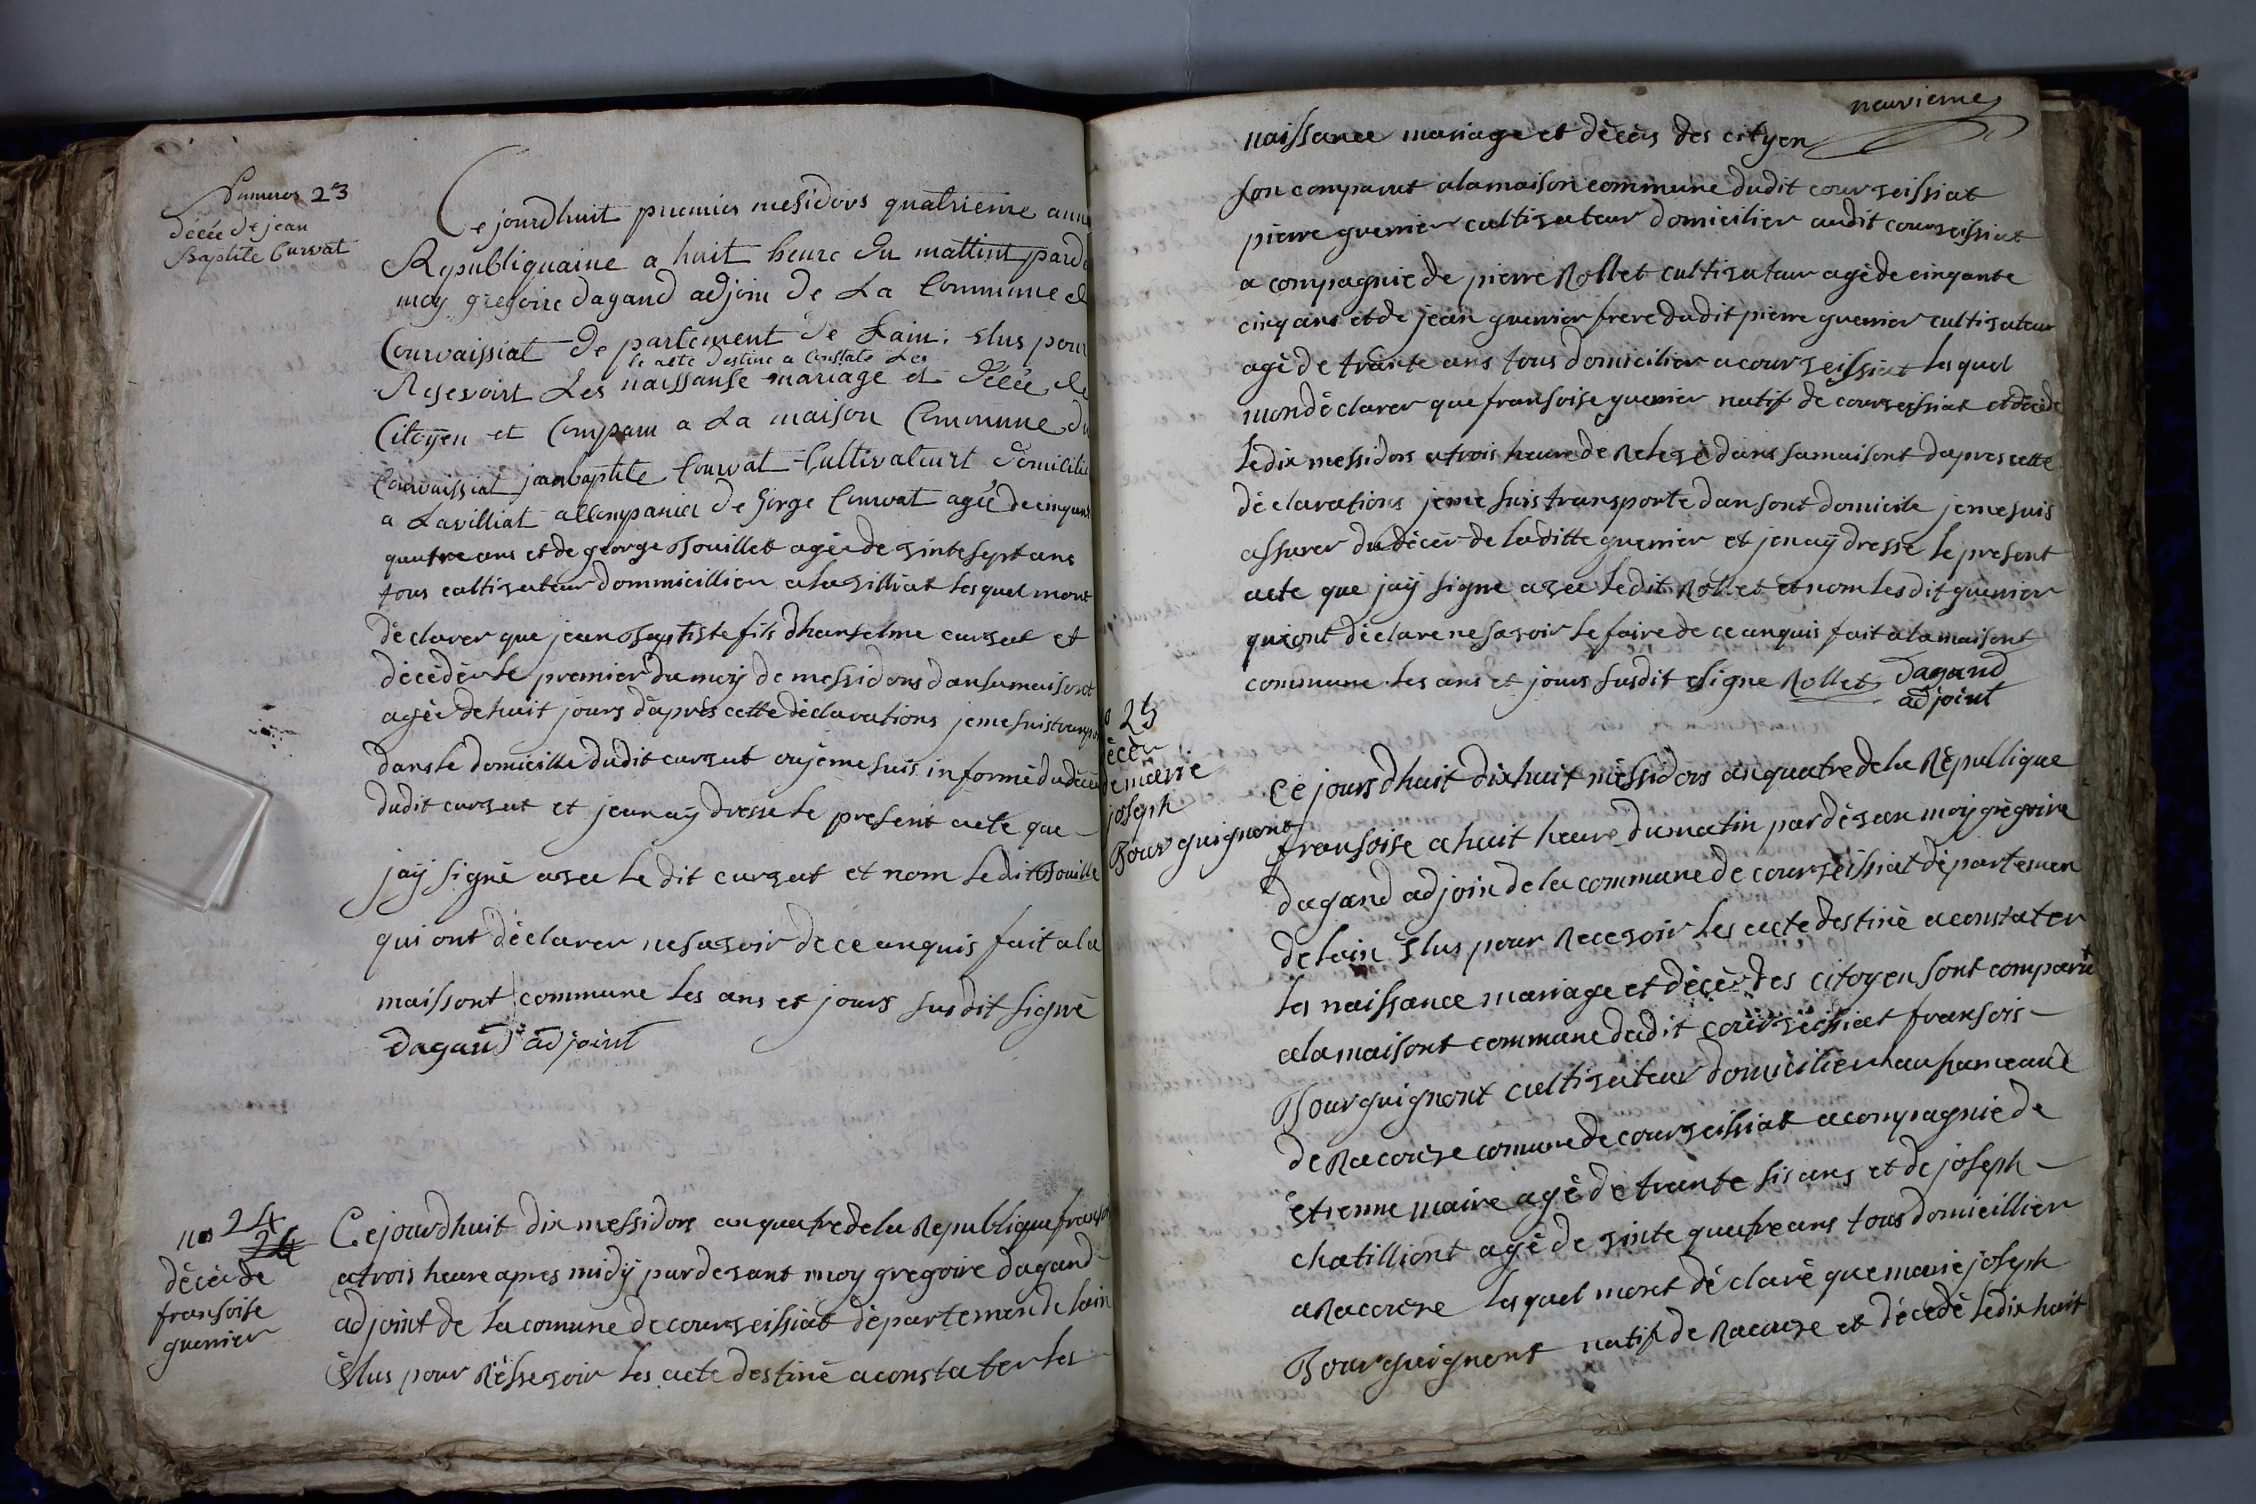 Numeros 23
décée de jean
Baptite Curvat
Ce jourdhuit premier mesidors quatrieme anne
Republiquaine a huit heure du mattint pard
moy gregoire dagand adjoin de La Commune d
Courvaissiat departement de Lain: elus pour
le acte destine a Constate Les
Resevoirt Les naissanse mariage et décée de
Citoÿen et Comparu a La maison Commune du
Courvaissiat janbaptite Courvat Cultivateurt domicilie
a Lavilliat accompanier de jorge Curvat agée de cinquant
quatre ans et de george Bouillet agée de vinte sept ans
tous cultivateur dommicillier a lavilliat lesquel mont
déclarer que jean Baptiste fils dhanselme curvat et
décédér le premier du moÿ de messidors dansamaisont
agée de huit jours dáprés cette déclarations jeme suis transpor
dans le domicille dudit curvat oujéme suis informé du décée
dudit curvat et jenaÿ dresse le present acte que
jaÿ signé avec le dit curvat et nom ledit Bouille
qui ont déclarer nesavoir de ce anquis fait a la
maissont commune les ans et jours susdit signé
Dagand adjoint
no 24
24
décée de
fransoise
guerrier
Cejourdhuit dix messidors anquatre de la Republique fransoi
atrois heure apres midÿ pardevant moy gregoire dagand
adjoint de la comune de courveissiat département de lain
élus pour résevoir les acte destiné aconstater les
neuvieme
naissance mariage et décés des cityen
son comparut alamaison commune dudit courveissiat
pierre guerrier cultivateur domicilier audit courveissiat
a compagnie de pierre Rollet cultivateur agé de cinqante
cinq ans et de jean guerrier frere dudit pierre guerrier cultivateur
agé de trante ans tous domicilier a courveissiat lesquel
mon déclarer que fransoise guerrier natif de courveissiat et décéde
le dix messidors atrois heure de relevé dans samaisont dapres cette
déclarations jeme suis transporte dan sont domicile jemesuis
assurer du décér de laditte guerrier et jenaÿ dresse le present
acte que jaÿ signe avec ledit Rollet et nom lesdit guerrier
qui ont déclare nesavoir le faire de ce anquis fait alamaisont
commune les ans et jours susdit signe Rollet Dagand
adjoint
o 25
écér
de marie
joseph
Bourguignont
Ce jours dhuit dixhuit méssidors anquatre de la République
fransoise a huit heure dumatin par dévan moy grégoire
dagand adjoin de la commune de courveissiat départemen
de lain élus pour recevoir les acte destiné aconstater
les naissance mariage et décér des citoyen sont comparut
alamaisont commune dudit courveissiat fransois
Bourguignont cultivateur domicilier au hameaue
de Racouse comune de courveissiat acompagnie de
étienne maire agé de trante sis ans et de joseph
chatilliont agé de vinte quatre ans tous domicillier
a Racouse lesquel mont déclaré que marie joseph
Bourguignont natif de Racouse et décédé ledix huit